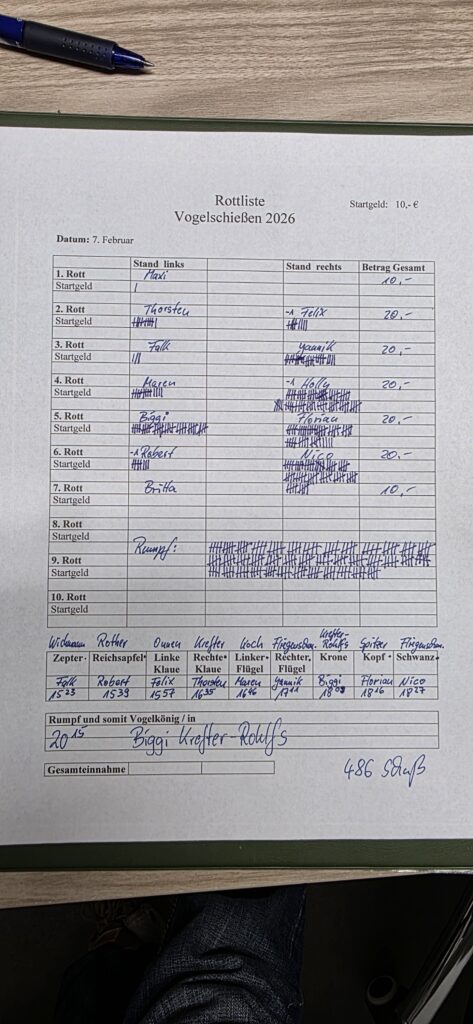 Rottliste
Vogelschießen 2026
Startgeld: 10,- €
Datum: 7. Februar
Stand links Stand rechts Betrag Gesamt
1. Rott Maxi 10,-
Startgeld
2. Rott Thorsten -1 Felix 20,-
Startgeld
3. Rott Falk Yannik 20,-
Startgeld
4. Rott Maren -1 Holly 20,-
Startgeld
5. Rott Biggi Florian 20,-
Startgeld
6. Rott -1 Robert Nico 20,-
Startgeld
7. Rott Britta 10,-
Startgeld
8. Rott
Startgeld
Rumpf:
9. Rott
Startgeld
10. Rott
Startgeld
Rother Onnen Krefter Koch Krefter-Rohlfs Spitzer
Zepter Reichsapfel Linke Klaue Rechte Klaue Linker Flügel Rechter Flügel Krone Kopf Schwanz
Falk Robert Felix Thorsten Maren Yannik Biggi Florian Nico
15 23 15 39 15 57 16 35 16 46 17 11 18 09 18 16 18 27
Rumpf und somit Vogelkönig / in
20 15 Biggi Krefter-Rohlfs
Gesamteinnahme
486 Schuß